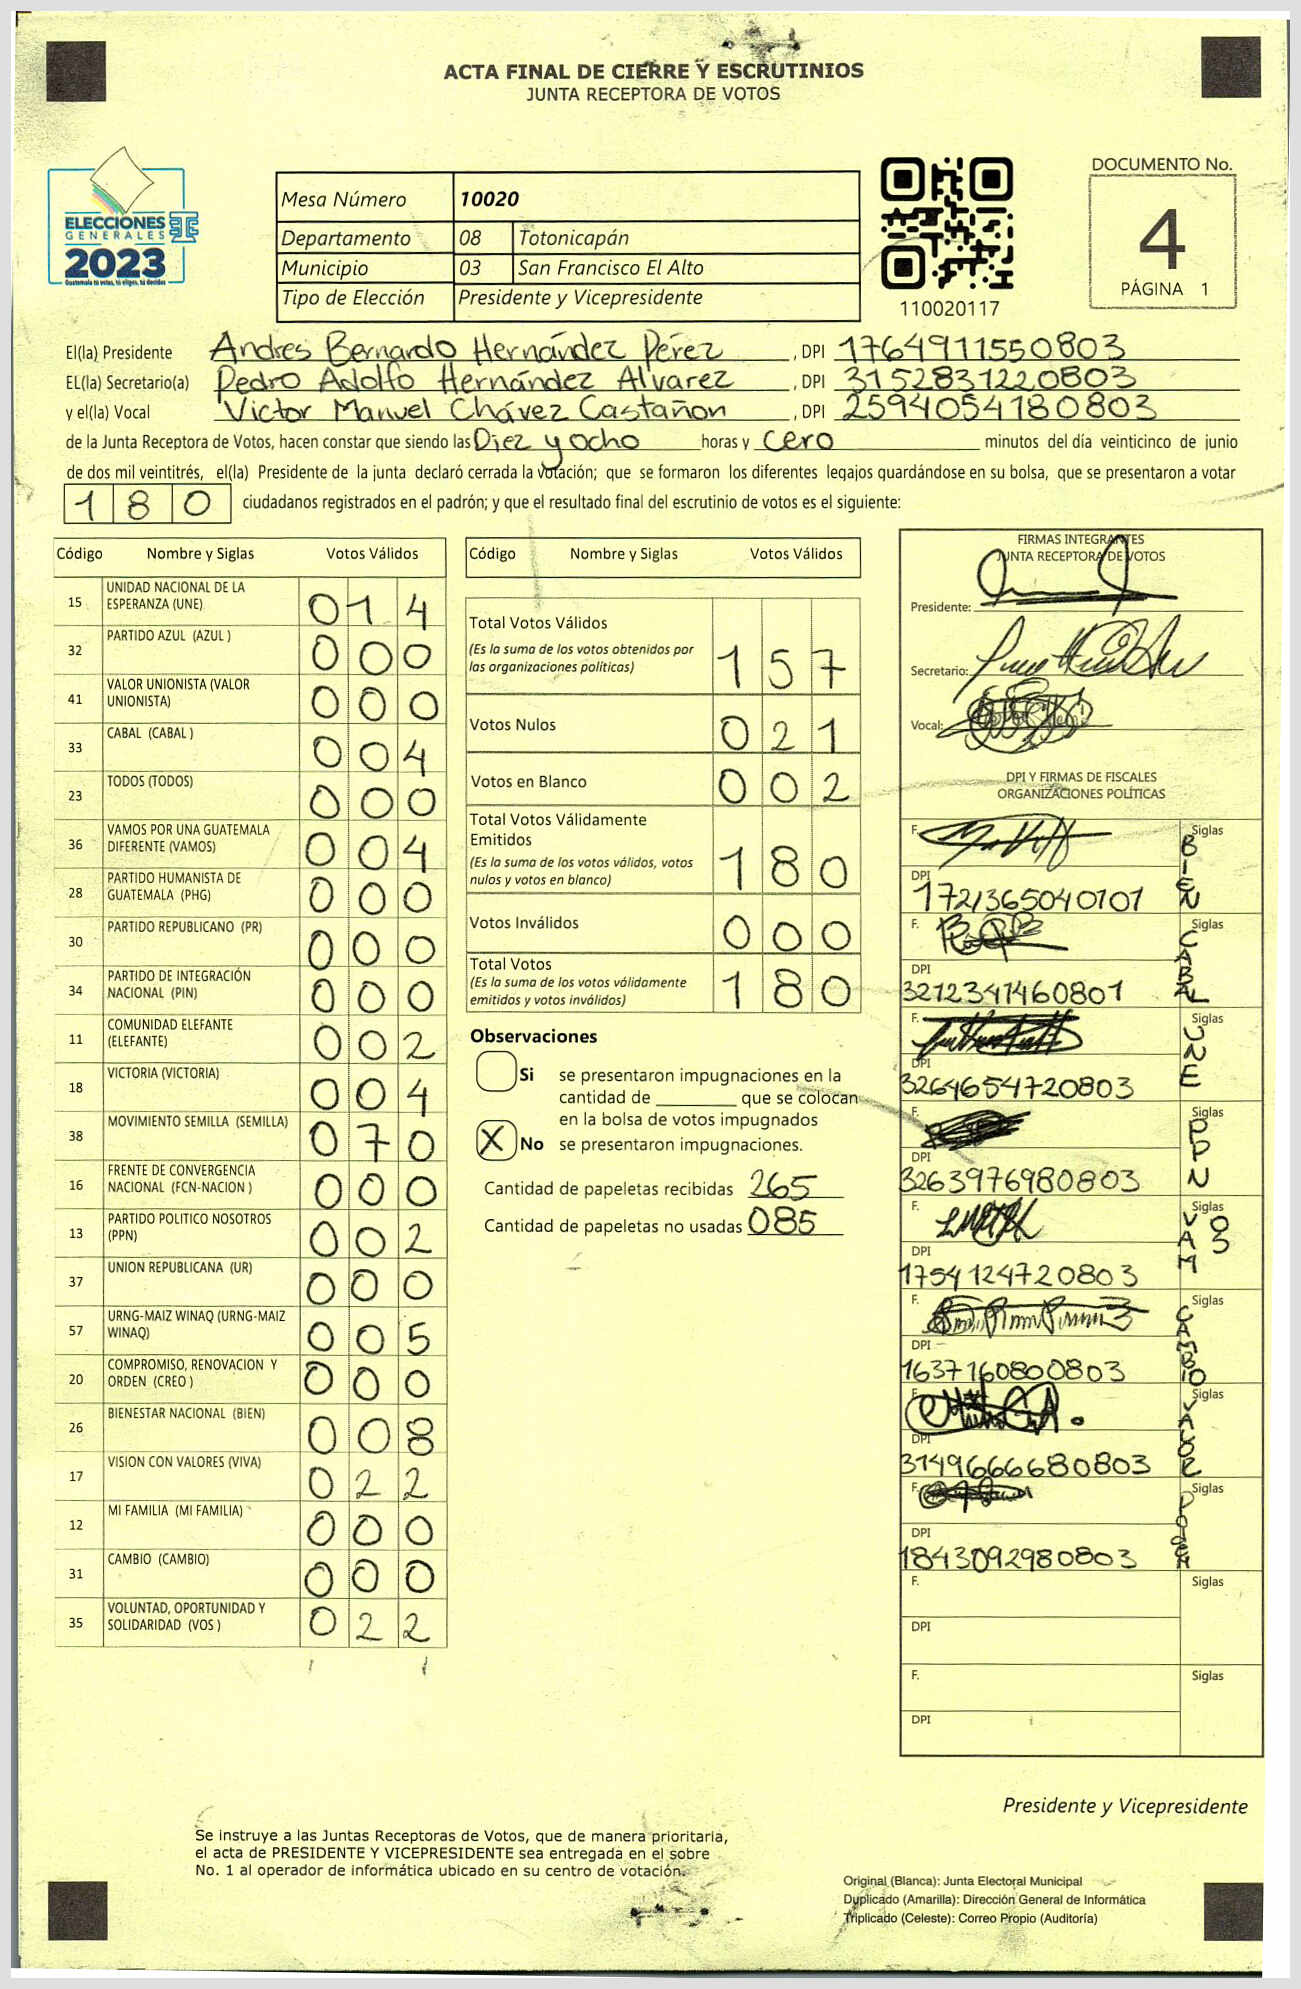 ACTA FINAL DE CIERRE Y ESCRUTINIOS
JUNTA RECEPTORA DE VOTOS
ELECCIONES
GENERALES
2023
Guatemala tú votas, tú eliges, tú decides
Mesa Número 10020
Departamento 08 Totonicapán
Municipio 03 San Francisco El Alto
Tipo de Elección Presidente y Vicepresidente
110020117
DOCUMENTO No.
4
PÁGINA 1
El(la) Presidente Andres Bernardo Hernández Pérez , DPI 1764911550803
EL(la) Secretario(a) Pedro Adolfo Hernández Alvarez , DPI 3152831220803
y el(la) Vocal Victor Manuel Chávez Castañon , DPI 2594054180803
de la Junta Receptora de Votos, hacen constar que siendo las Diez y ocho horas y cero minutos del día veinticinco de junio
de dos mil veintitrés, el(la) Presidente de la junta declaró cerrada la votación; que se formaron los diferentes legajos guardándose en su bolsa, que se presentaron a votar
180 ciudadanos registrados en el padrón; y que el resultado final del escrutinio de votos es el siguiente:
Código Nombre y Siglas Votos Válidos
15 UNIDAD NACIONAL DE LA ESPERANZA (UNE) 014
32 PARTIDO AZUL (AZUL ) 000
41 VALOR UNIONISTA (VALOR UNIONISTA) 000
33 CABAL (CABAL ) 004
23 TODOS (TODOS) 000
36 VAMOS POR UNA GUATEMALA DIFERENTE (VAMOS) 004
28 PARTIDO HUMANISTA DE GUATEMALA (PHG) 000
30 PARTIDO REPUBLICANO (PR) 000
34 PARTIDO DE INTEGRACIÓN NACIONAL (PIN) 000
11 COMUNIDAD ELEFANTE (ELEFANTE) 002
18 VICTORIA (VICTORIA) 004
38 MOVIMIENTO SEMILLA (SEMILLA) 070
16 FRENTE DE CONVERGENCIA NACIONAL (FCN-NACION ) 000
13 PARTIDO POLITICO NOSOTROS (PPN) 002
37 UNION REPUBLICANA (UR) 000
57 URNG-MAIZ WINAQ (URNG-MAIZ WINAQ) 005
20 COMPROMISO, RENOVACION Y ORDEN (CREO ) 000
26 BIENESTAR NACIONAL (BIEN) 008
17 VISION CON VALORES (VIVA) 022
12 MI FAMILIA (MI FAMILIA) 000
31 CAMBIO (CAMBIO) 000
35 VOLUNTAD, OPORTUNIDAD Y SOLIDARIDAD (VOS ) 022
Código Nombre y Siglas Votos Válidos
Total Votos Válidos
(Es la suma de los votos obtenidos por
las organizaciones políticas) 157
Votos Nulos 021
Votos en Blanco 002
Total Votos Válidamente
Emitidos
(Es la suma de los votos válidos, votos
nulos y votos en blanco) 180
Votos Inválidos 000
Total Votos
(Es la suma de los votos válidamente
emitidos y votos inválidos) 180
Observaciones
Si se presentaron impugnaciones en la
cantidad de ________ que se colocan
en la bolsa de votos impugnados
X No se presentaron impugnaciones.
Cantidad de papeletas recibidas 265
Cantidad de papeletas no usadas 085
FIRMAS INTEGRANTES
JUNTA RECEPTORA DE VOTOS
Presidente:
Secretario:
Vocal:
DPI Y FIRMAS DE FISCALES
ORGANIZACIONES POLÍTICAS
F. Siglas BIEN
DPI 1721365040101
F. Siglas CABAL
DPI 3212341460801
F. Siglas UNE
DPI 3264654720803
F. Siglas PPN
DPI 3263976980803
F. Siglas VAMOS
DPI 1754124720803
F. Siglas CAMBIO
DPI 1637160800803
F. Siglas VALOR
DPI 3149666680803
F. Siglas
DPI 1843092980803
F. Siglas
DPI
F. Siglas
DPI
Presidente y Vicepresidente
Se instruye a las Juntas Receptoras de Votos, que de manera prioritaria,
el acta de PRESIDENTE Y VICEPRESIDENTE sea entregada en el sobre
No. 1 al operador de informática ubicado en su centro de votación.
Original (Blanca): Junta Electoral Municipal
Duplicado (Amarilla): Dirección General de Informática
Triplicado (Celeste): Correo Propio (Auditoría)